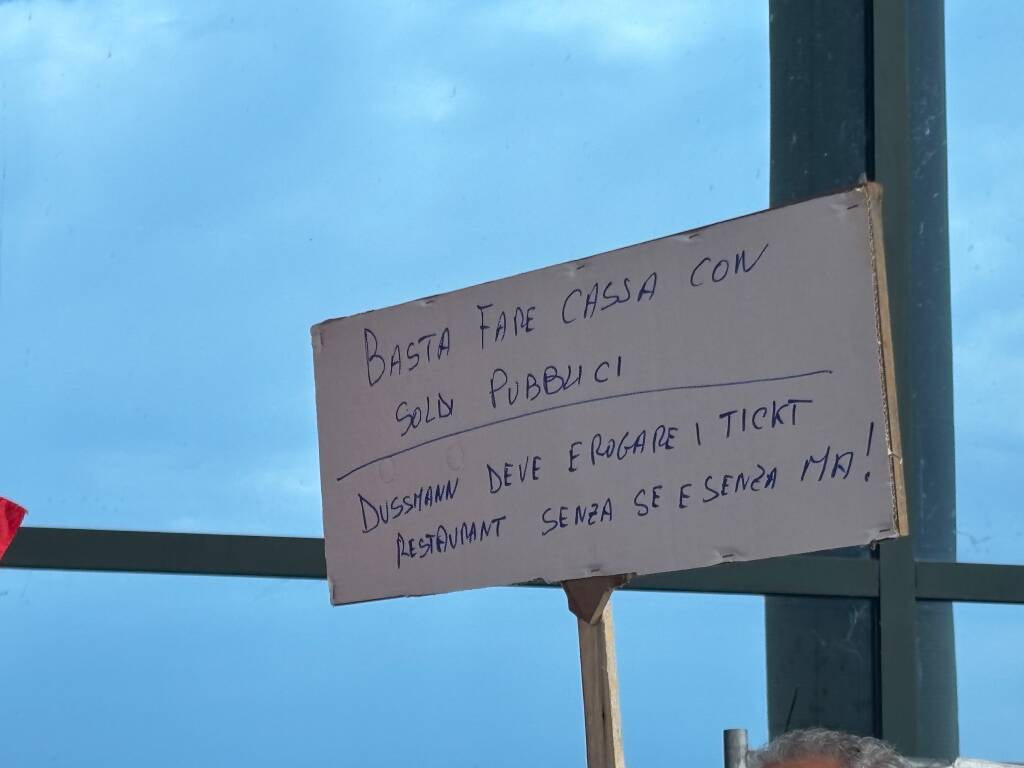 BASTA FARE CASSA CON
SOLDI PUBBLICI
DUSSMANN DEVE EROGARE I TICKT
RESTAURANT SENZA SE E SENZA MA!